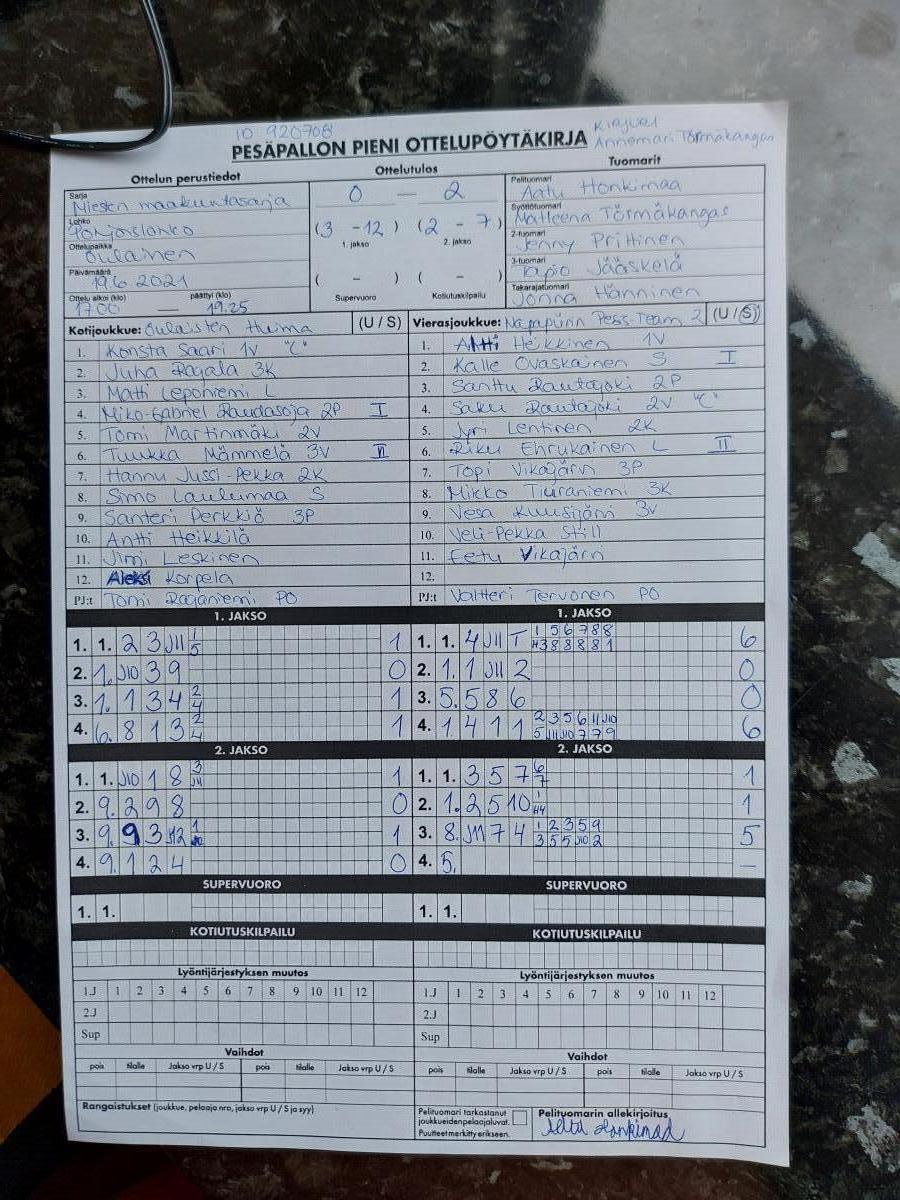 ID 920708
Kirjuri
Annemari Törmäkangas
PESÄPALLON PIENI OTTELUPÖYTÄKIRJA
Ottelun perustiedot
Ottelutulos
Tuomarit
Sarja
Miesten maakuntasarja
Lohko
Pohjoislohko
Ottelupaikka
Oulainen
Päivämäärä
19.6.2021
Ottelu alkoi (klo) päättyi (klo)
17.00 — 19.25
0 — 2
(3 - 12) (2 - 7)
1. jakso 2. jakso
( - ) ( - )
Supervuoro Kotiutuskilpailu
Pelituomari
Aatu Honkimaa
Syöttötuomari
Matleena Törmäkangas
2-tuomari
Jenny Prittinen
3-tuomari
Tapio Jääskelä
Takarajatuomari
Jonna Hänninen
Kotijoukkue: Oulaisten Huima (U / S)
1. Konsta Saari 1V "C"
2. Juha Rajala 3K
3. Matti Leponiemi L
4. Miko-Gabriel Raudasoja 2P I
5. Tomi Martinmäki 2V
6. Tuukka Mämmelä 3V II
7. Hannu Jussi-Pekka 2K
8. Simo Laulumaa S
9. Santeri Perkkiö 3P
10. Antti Heikkilä
11. Jimi Leskinen
12. Aleksi Korpela
PJ:t Tomi Rajaniemi PO
Vierasjoukkue: Napapiirin Pesis-Team 2 (U / S)
1. Antti Heikkinen 1V
2. Kalle Ovaskainen S I
3. Santtu Rautajoki 2P
4. Saku Rautajoki 2V "C"
5. Jyri Lentinen 2K
6. Riku Ehrukainen L II
7. Topi Vikajärvi 3P
8. Mikko Tiuraniemi 3K
9. Vesa Kuusijärvi 3V
10. Veli-Pekka Still
11. Eetu Vikajärvi
12.
PJ:t Valtteri Tervonen PO
1. JAKSO
1. 1. 2 3 J11 1/5 1
2. 1. J10 3 9 0
3. 1. 1 3 4 2/4 1
4. 6. 8 1 3 2/4 1
1. JAKSO
1. 1. 4 J11 T 1 5 6 7 8 8 6
H3 8 8 8 8 1
2. 1. 1 J11 2 0
3. 5. 5 8 6 0
4. 1 4 1 1 2 3 5 6 11 J10 6
5 J11 J10 7 7 9
2. JAKSO
1. 1. J10 1 8 3/J11 1
2. 9. 2 9 8 0
3. 9. 9 3 J12 1
4. 9. 1 2 4 0
2. JAKSO
1. 1. 3 5 7 6/7 1
2. 1. 2 5 10 1/H4 1
3. 8. J11 7 4 1 2 3 5 9 5
3 5 5 J10 2
4. 5. —
SUPERVUORO
1. 1.
SUPERVUORO
1. 1.
KOTIUTUSKILPAILU
KOTIUTUSKILPAILU
Lyöntijärjestyksen muutos
1.J 1 2 3 4 5 6 7 8 9 10 11 12
2.J
Sup
Lyöntijärjestyksen muutos
1.J 1 2 3 4 5 6 7 8 9 10 11 12
2.J
Sup
Vaihdot
pois tilalle Jakso vrp U / S pois tilalle Jakso vrp U / S
Vaihdot
pois tilalle Jakso vrp U / S pois tilalle Jakso vrp U / S
Rangaistukset (joukkue, pelaaja nro, jakso vrp U / S ja syy)
Pelituomari tarkastanut
joukkueiden pelaajaluvat.
Puutteet merkitty erikseen.
Pelituomarin allekirjoitus
Aatu Honkimaa